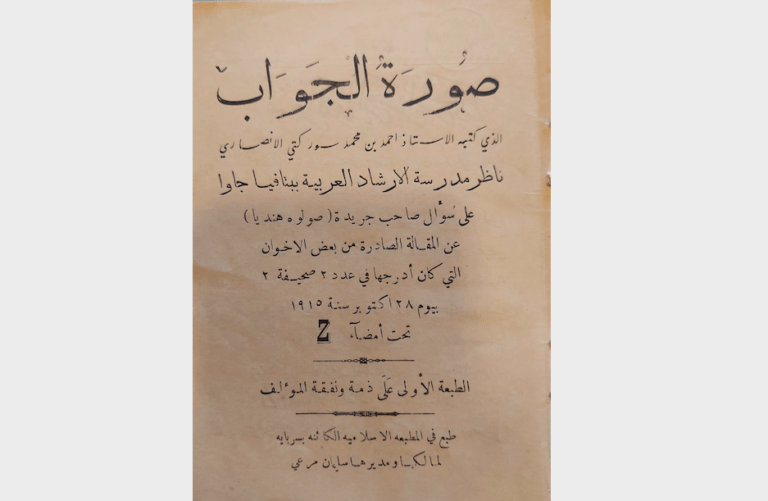 صُورَةُ الجَوَاب
الذي كتبه الاستاذ احمد بن محمد سوركتي الانصاري
ناظر مدرسة الارشاد العربية ببتافيا جاوا
على سُؤال صاحب جريدة ( صولوه هنديا )
عن المقالة الصادرة من بعض الاخوان
التي كان أدرجها في عدد ٢ صحيفة ٢
بيوم ٢٨ اكتوبر سنة ١٩١٥
تحت أمضآء Z
الطبعة الأولى عَلَى ذمة ونفقة المؤلف
طبع في المطبعه الاسلاميه الكائنه بسربايه
لمالكها ومديرها سايان مرعي